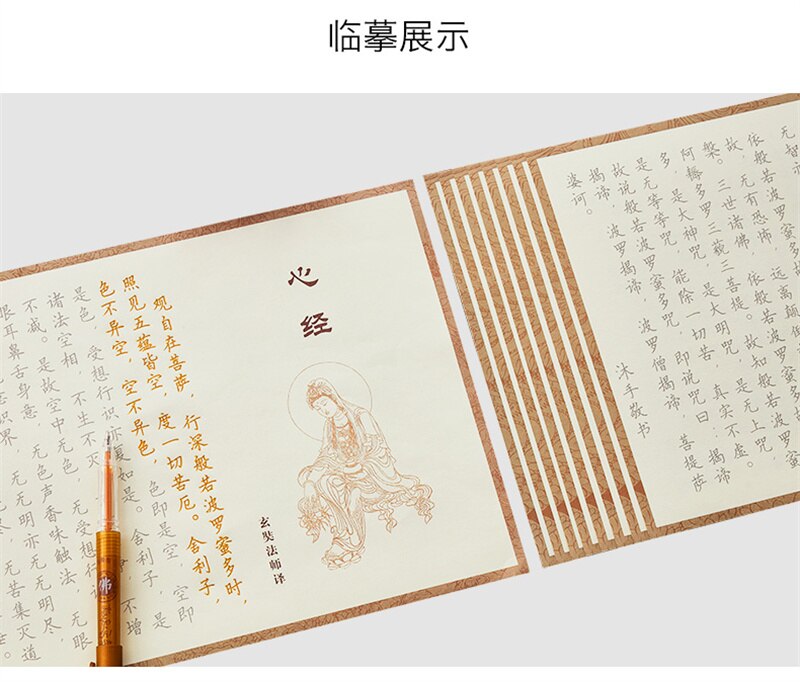 临摹展示
心经
玄奘法师译
观自在菩萨，行深般若波罗蜜多时，
照见五蕴皆空，度一切苦厄。舍利子，
色不异空，空不异色，色即是空，空即
是色，受想行识亦复如是。舍利子，是
诸法空相，不生不灭，不增
不减。是故空中无色，无受想行
眼耳鼻舌身意，无色声香味触法，无眼
意识界，无无明，亦无无明尽，
无苦集灭道
无智亦
依般若波罗蜜多
故，无有恐怖，远离颠倒
槃。三世诸佛，依般若波罗蜜多
阿耨多罗三藐三菩提。故知般若波罗蜜
多，是大神咒，是大明咒，是无上咒，
是无等等咒，能除一切苦，真实不虚。
故说般若波罗蜜多咒，即说咒曰：揭谛
揭谛，波罗揭谛，波罗僧揭谛，菩提萨
婆诃。
沐手敬书
佛